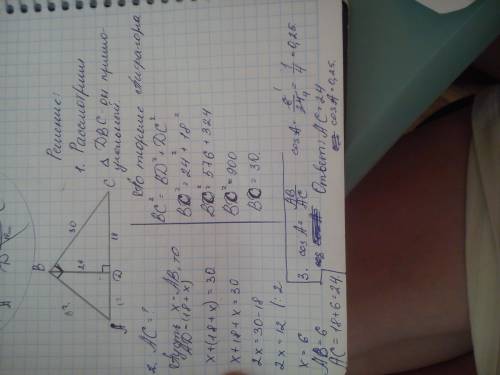 Решение:
1. Рассмотрим
△ DBC он прямо-
угольный.
По теореме Пифагора
BC² = BD² + DC²
BC² = 24² + 18²
BC² = 576 + 324
BC² = 900
BC = 30.
B
30
24
A
D
18
C
2. AC = ?
Пусть x = AB, то
AC = (18+x)
x+(18+x) = 30
x+18+x = 30
2x = 30-18
2x = 12 | :2
x = 6
AB = 6
AC = 18+6 = 24
3. cos A = AB/AC
cos A = 6/24 = 1/4 = 0,25.
Ответ: AC = 24
cos A = 0,25.